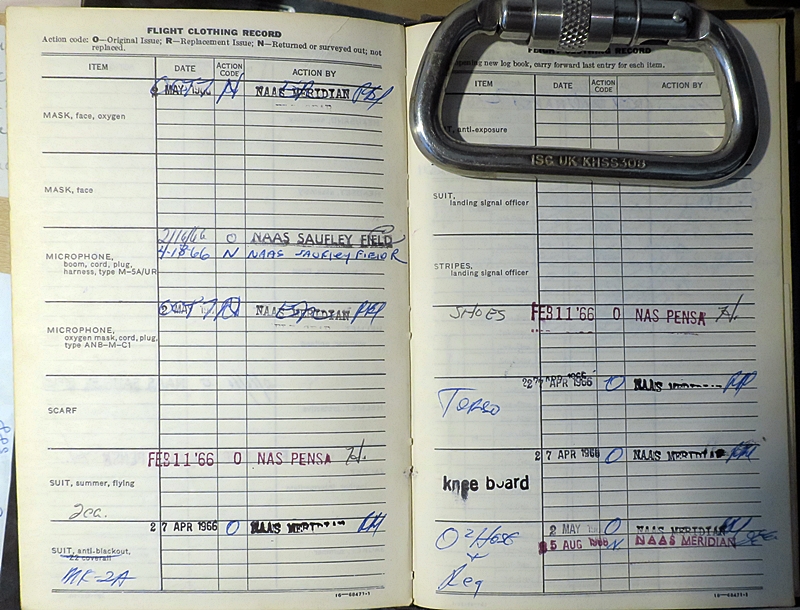 FLIGHT CLOTHING RECORD
Action code: O—Original Issue; R—Replacement Issue; N—Returned or surveyed out; not
replaced.
ITEM DATE ACTION CODE ACTION BY
MAY N NAAS MERIDIAN
MASK, face, oxygen
MASK, face
2/16/66 O NAAS SAUFLEY FIELD
4-18-66 N NAAS SAUFLEY FIELD R
MICROPHONE,
boom, cord, plug,
harness, type M-5A/UR
MAY NAAS MERIDIAN
MICROPHONE,
oxygen mask, cord, plug,
type ANB-M-C1
SCARF
FEB 11 '66 O NAS PENSA
SUIT, summer, flying
2ea.
27 APR 1966 O NAAS MERIDIAN
SUIT, anti-blackout,
Z2 coverall
MK-2A
16—68471-1
FLIGHT CLOTHING RECORD
opening new log book, carry forward last entry for each item.
ITEM DATE ACTION CODE ACTION BY
anti-exposure
ISC UK KHSS308
SUIT,
landing signal officer
STRIPES,
landing signal officer
SHOES FEB 11 '66 O NAS PENSA
27 APR 1966 O NAAS
Torso
27 APR 1966 O NAAS MERIDIAN
knee board
O2 Hose 2 MAY O NAAS MERIDIAN
5 AUG 1966 N NAAS MERIDIAN
+
Reg